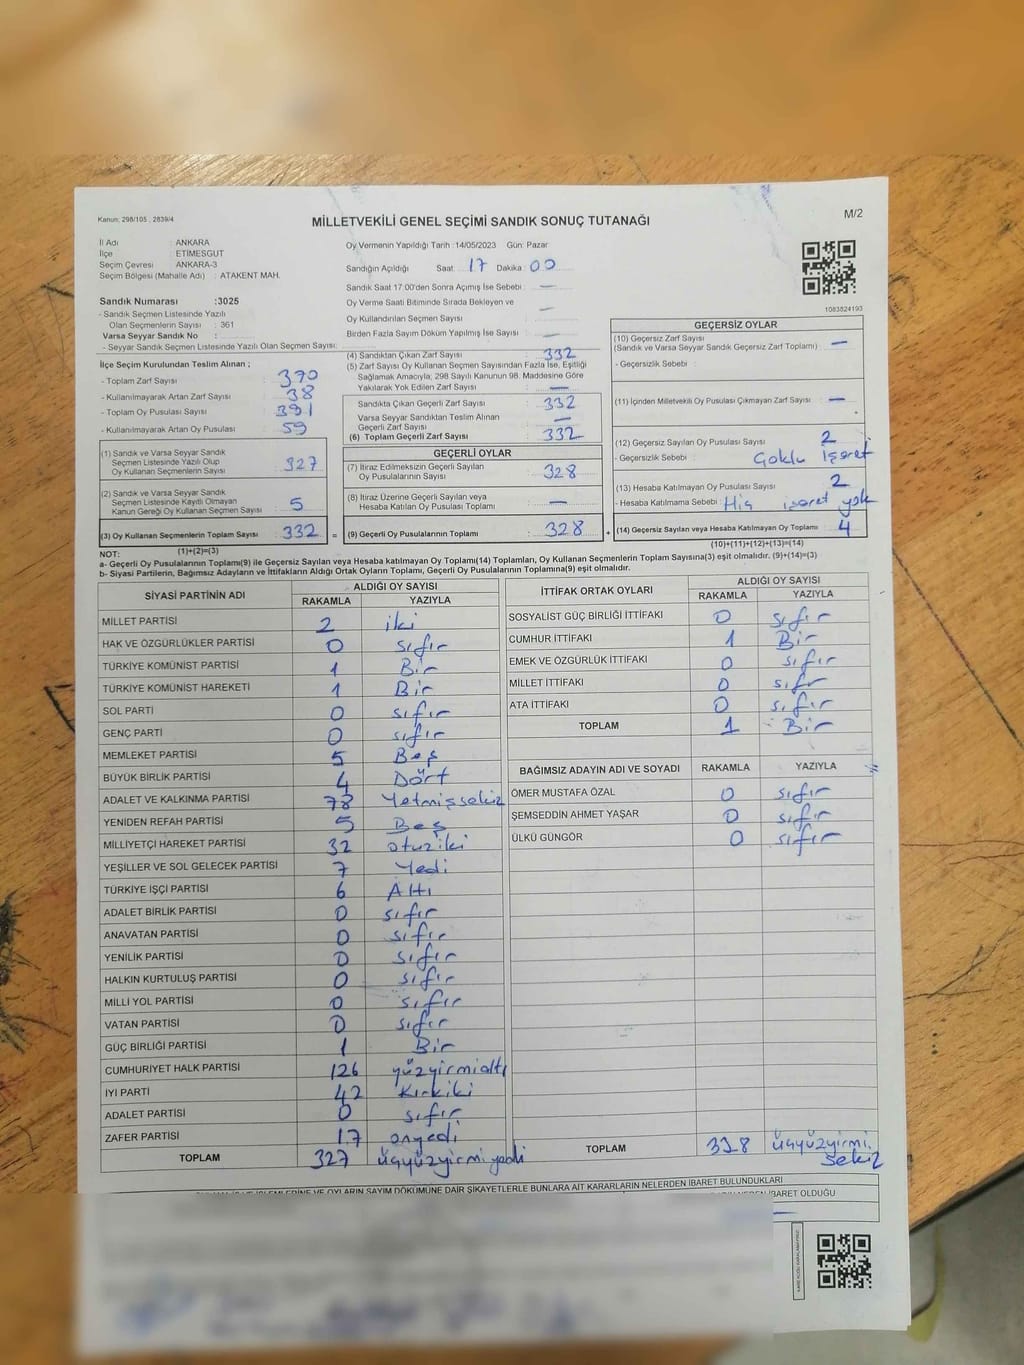 Kanun: 298/105 , 2839/4
MİLLETVEKİLİ GENEL SEÇİMİ SANDIK SONUÇ TUTANAĞI
M/2
İl Adı : ANKARA
İlçe : ETİMESGUT
Seçim Çevresi : ANKARA-3
Seçim Bölgesi (Mahalle Adı) : ATAKENT MAH.
Sandık Numarası :3025
- Sandık Seçmen Listesinde Yazılı
Olan Seçmenlerin Sayısı : 361
Varsa Seyyar Sandık No :
- Seyyar Sandık Seçmen Listesinde Yazılı Olan Seçmen Sayısı:
Oy Vermenin Yapıldığı Tarih :14/05/2023 Gün: Pazar
Sandığın Açıldığı Saat 17 Dakika : 00
Sandık Saat 17.00'den Sonra Açılmış İse Sebebi : —
Oy Verme Saati Bitiminde Sırada Bekleyen ve
Oy Kullandırılan Seçmen Sayısı : —
Birden Fazla Sayım Döküm Yapılmış İse Sayısı : —
1083824193
İlçe Seçim Kurulundan Teslim Alınan ;
- Toplam Zarf Sayısı : 370
- Kullanılmayarak Artan Zarf Sayısı : 38
- Toplam Oy Pusulası Sayısı : 391
- Kullanılmayarak Artan Oy Pusulası : 59
(1) Sandık ve Varsa Seyyar Sandık
Seçmen Listesinde Yazılı Olup
Oy Kullanan Seçmenlerin Sayısı : 327
(2) Sandık ve Varsa Seyyar Sandık
Seçmen Listesinde Kayıtlı Olmayan
Kanun Gereği Oy Kullanan Seçmen Sayısı : 5
(3) Oy Kullanan Seçmenlerin Toplam Sayısı : 332
(1)+(2)=(3)
(4) Sandıktan Çıkan Zarf Sayısı : 332
(5) Zarf Sayısı Oy Kullanan Seçmenlerin Sayısından Fazla İse, Eşitliği
Sağlamak Amacıyla; 298 Sayılı Kanunun 98. Maddesine Göre
Yakılarak Yok Edilen Zarf Sayısı : —
Sandıkta Çıkan Geçerli Zarf Sayısı : 332
Varsa Seyyar Sandıktan Teslim Alınan
Geçerli Zarf Sayısı : —
(6) Toplam Geçerli Zarf Sayısı : 332
GEÇERLİ OYLAR
(7) İtiraz Edilmeksizin Geçerli Sayılan
Oy Pusulalarının Sayısı : 328
(8) İtiraz Üzerine Geçerli Sayılan veya
Hesaba Katılan Oy Pusulası Toplamı : —
= (9) Geçerli Oy Pusulalarının Toplamı : 328 +
GEÇERSİZ OYLAR
(10) Geçersiz Zarf Sayısı
(Sandık ve Varsa Seyyar Sandık Geçersiz Zarf Toplamı) : —
- Geçersizlik Sebebi :
(11) İçinden Milletvekili Oy Pusulası Çıkmayan Zarf Sayısı : —
(12) Geçersiz Sayılan Oy Pusulası Sayısı : 2
- Geçersizlik Sebebi : Çoklu İşaret
(13) Hesaba Katılmayan Oy Pusulası Sayısı : 2
- Hesaba Katılmama Sebebi : Hiç işaret yok
(14) Geçersiz Sayılan veya Hesaba Katılmayan Oy Toplamı : 4
(10)+(11)+(12)+(13)=(14)
NOT:
a- Geçerli Oy Pusulalarının Toplamı(9) ile Geçersiz Sayılan veya Hesaba katılmayan Oy Toplamı(14) Toplamları, Oy Kullanan Seçmenlerin Toplam Sayısına(3) eşit olmalıdır. (9)+(14)=(3)
b- Siyasi Partilerin, Bağımsız Adayların ve İttifakların Aldığı Ortak Oyların Toplamı, Geçerli Oy Pusulalarının Toplamına(9) eşit olmalıdır.
SİYASİ PARTİNİN ADI ALDIĞI OY SAYISI
RAKAMLA YAZIYLA
MİLLET PARTİSİ 2 iki
HAK VE ÖZGÜRLÜKLER PARTİSİ 0 sıfır
TÜRKİYE KOMÜNİST PARTİSİ 1 Bir
TÜRKİYE KOMÜNİST HAREKETİ 1 Bir
SOL PARTİ 0 sıfır
GENÇ PARTİ 0 sıfır
MEMLEKET PARTİSİ 5 Beş
BÜYÜK BİRLİK PARTİSİ 4 Dört
ADALET VE KALKINMA PARTİSİ 78 Yetmişsekiz
YENİDEN REFAH PARTİSİ 5 Beş
MİLLİYETÇİ HAREKET PARTİSİ 32 otuziki
YEŞİLLER VE SOL GELECEK PARTİSİ 7 Yedi
TÜRKİYE İŞÇİ PARTİSİ 6 Altı
ADALET BİRLİK PARTİSİ 0 sıfır
ANAVATAN PARTİSİ 0 sıfır
YENİLİK PARTİSİ 0 sıfır
HALKIN KURTULUŞ PARTİSİ 0 sıfır
MİLLİ YOL PARTİSİ 0 sıfır
VATAN PARTİSİ 0 sıfır
GÜÇ BİRLİĞİ PARTİSİ 1 Bir
CUMHURİYET HALK PARTİSİ 126 yüzyirmialtı
İYİ PARTİ 42 Kırkiki
ADALET PARTİSİ 0 sıfır
ZAFER PARTİSİ 17 onyedi
TOPLAM 327 üçyüzyirmiyedi
İTTİFAK ORTAK OYLARI ALDIĞI OY SAYISI
RAKAMLA YAZIYLA
SOSYALİST GÜÇ BİRLİĞİ İTTİFAKI 0 sıfır
CUMHUR İTTİFAKI 1 Bir
EMEK VE ÖZGÜRLÜK İTTİFAKI 0 sıfır
MİLLET İTTİFAKI 0 sıfr
ATA İTTİFAKI 0 sıfır
TOPLAM 1 Bir
BAĞIMSIZ ADAYIN ADI VE SOYADI RAKAMLA YAZIYLA
ÖMER MUSTAFA ÖZAL 0 sıfır
ŞEMSEDDİN AHMET YAŞAR 0 sıfır
ÜLKÜ GÜNGÖR 0 sıfır
TOPLAM 328 üçyüzyirmi
sekiz
OYLARIN SAYIM DÖKÜMÜNE DAİR ŞİKAYETLERLE BUNLARA AİT KARARLARIN NELERDEN İBARET BULUNDUKLARI
İBARET OLDUĞU